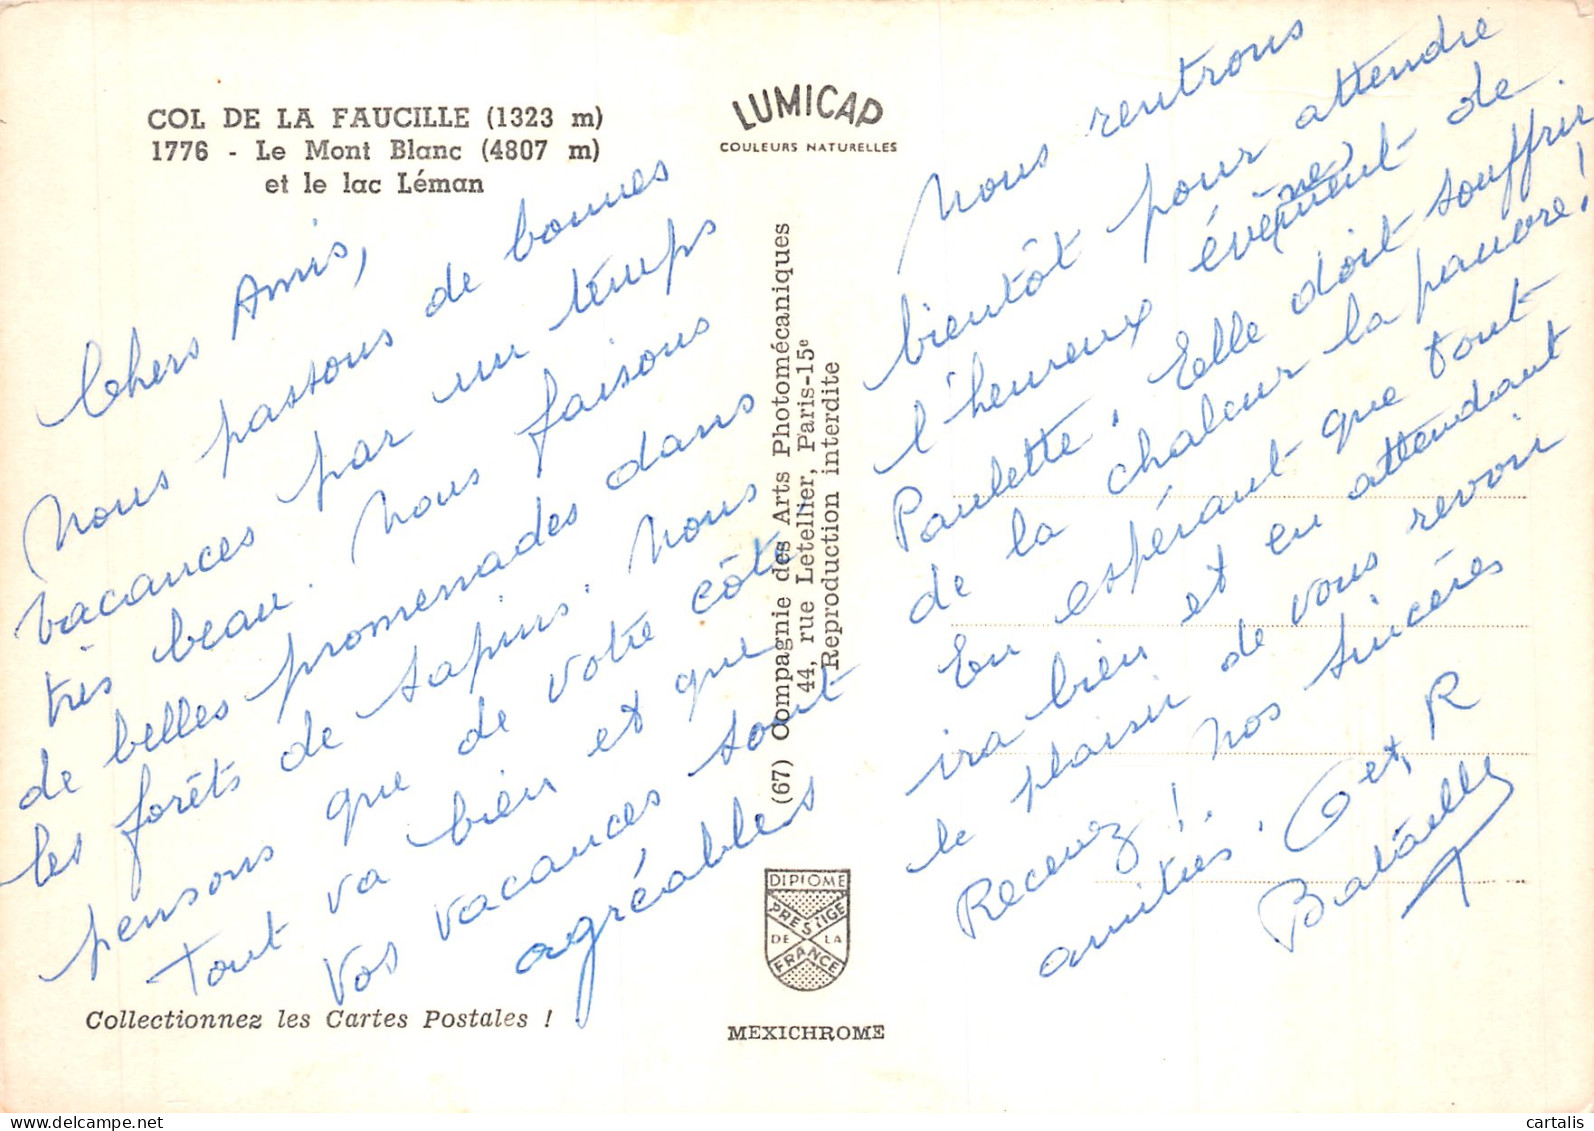 COL DE LA FAUCILLE (1323 m)
1776 - Le Mont Blanc (4807 m)
et le lac Léman
LUMICAP
COULEURS NATURELLES
Chers Amis,
Nous passons de bonnes
vacances par un temps
très beau. Nous faisons
de belles promenades dans
les forêts de sapins. Nous
pensons que de votre côté
tout va bien et que
vos vacances sont
agréables
Collectionnez les Cartes Postales !
(67) Compagnie des Arts Photomécaniques
44, rue Letellier, Paris-15e
Reproduction interdite
DIPLOME
PRESTIGE
DE LA
FRANCE
MEXICHROME
Nous rentrons
bientôt pour attendre
l'heureux événement de
Paulette. Elle doit souffrir
de la chaleur la pauvre !
En espérant que tout
ira bien et en attendant
le plaisir de vous revoir
Recevez ! nos sincères
amitiés. G et R
Bataille
www.delcampe.net
cartalis